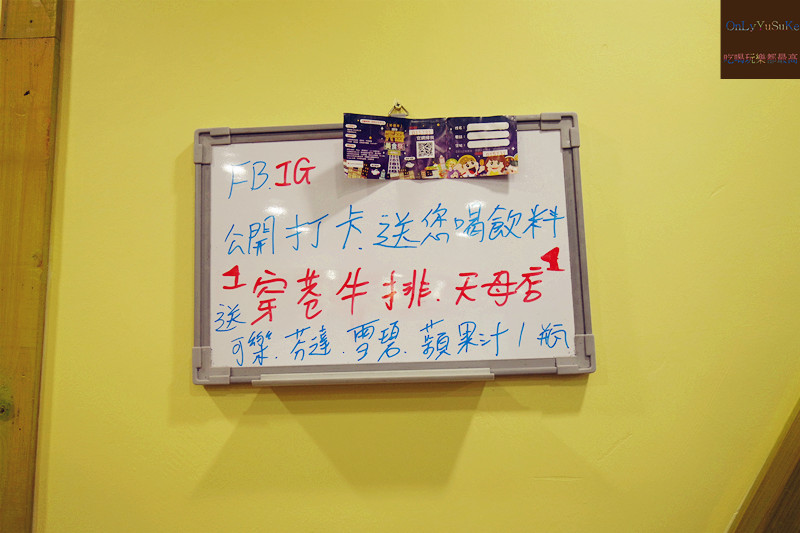 OnLyYuSuKe
吃喝玩樂都最高
FB.IG
公開打卡.送您喝飲料
穿巷牛排.天母店
送可樂.芬達.雪碧.蘋果汁1瓶